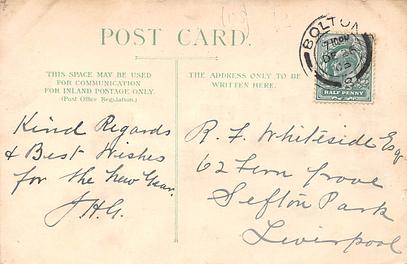 POST CARD.
THIS SPACE MAY BE USED
FOR COMMUNICATION
FOR INLAND POSTAGE ONLY.
(Post Office Regulation.)
THE ADDRESS ONLY TO BE
WRITTEN HERE.
BOLTON
HALF PENNY
Kind Regards
& Best Wishes
for the New Year.
J.H.G.
R. F. Whiteside Esq
62 Fern Grove
Sefton Park
Liverpool